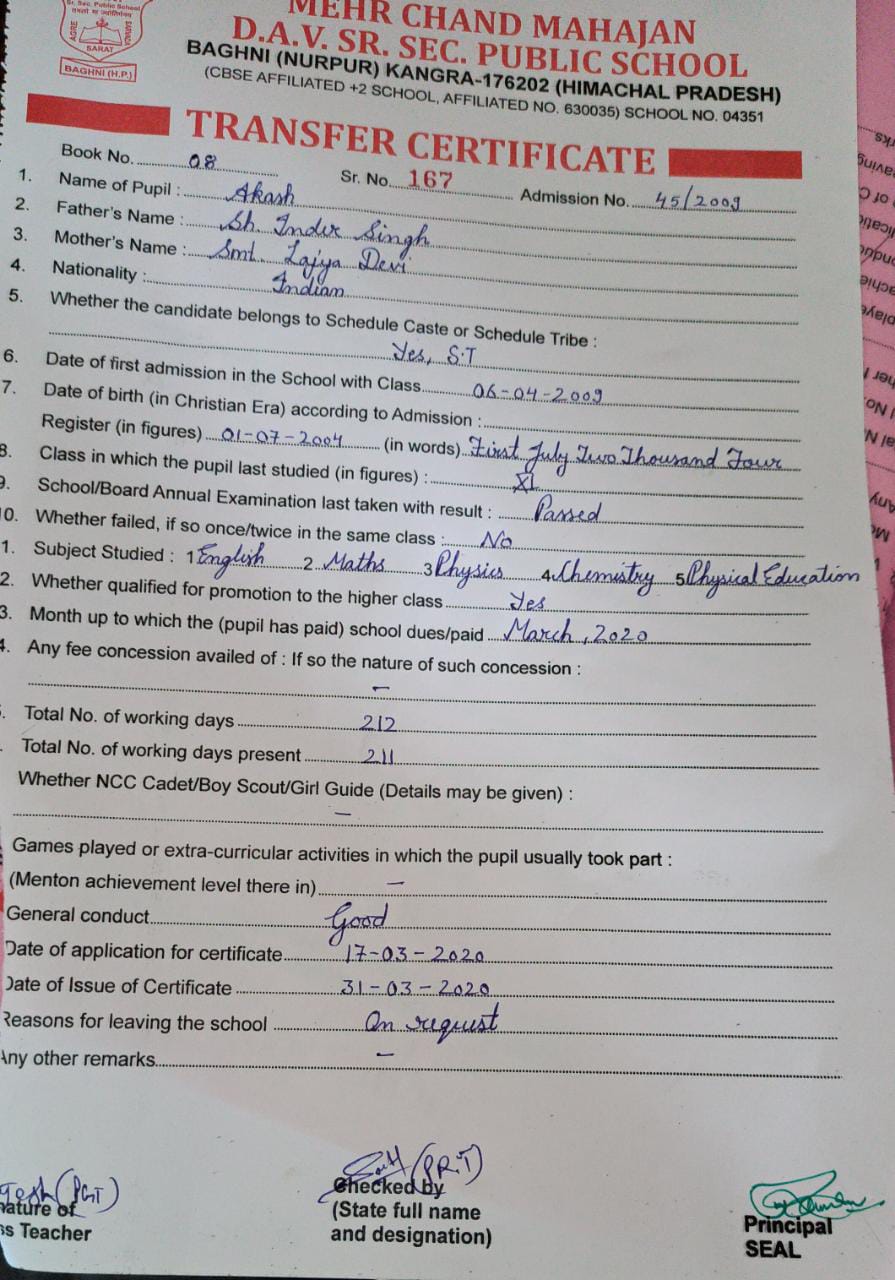 Sr. Sec. Public School
तमसो मा ज्योतिर्गमय
AGRE
SARAT
BAGHNI (H.P.)
MEHR CHAND MAHAJAN
D.A.V. SR. SEC. PUBLIC SCHOOL
BAGHNI (NURPUR) KANGRA-176202 (HIMACHAL PRADESH)
(CBSE AFFILIATED +2 SCHOOL, AFFILIATED NO. 630035) SCHOOL NO. 04351
TRANSFER CERTIFICATE
Book No. 08 Sr. No. 167 Admission No. 45/2009
1. Name of Pupil : Akash
2. Father's Name : Sh. Inder Singh
3. Mother's Name : Smt. Lajya Devi
4. Nationality : Indian
5. Whether the candidate belongs to Schedule Caste or Schedule Tribe :
Yes, S.T
6. Date of first admission in the School with Class 06-04-2009
7. Date of birth (in Christian Era) according to Admission :
Register (in figures) 01-07-2004 (in words) First July Two Thousand Four
8. Class in which the pupil last studied (in figures) : XI
9. School/Board Annual Examination last taken with result : Passed
10. Whether failed, if so once/twice in the same class : No
1. Subject Studied : 1 English 2 Maths 3 Physics 4 Chemistry 5 Physical Education
2. Whether qualified for promotion to the higher class Yes
3. Month up to which the (pupil has paid) school dues/paid March, 2020
4. Any fee concession availed of : If so the nature of such concession :
–
Total No. of working days 212
Total No. of working days present 211
Whether NCC Cadet/Boy Scout/Girl Guide (Details may be given) :
–
Games played or extra-curricular activities in which the pupil usually took part :
(Menton achievement level there in) –
General conduct Good
Date of application for certificate 17-03-2020
Date of Issue of Certificate 31-03-2020
Reasons for leaving the school On request
Any other remarks –
(PGT)
(PRT)
nature of
ss Teacher
Checked by
(State full name
and designation)
Principal
SEAL